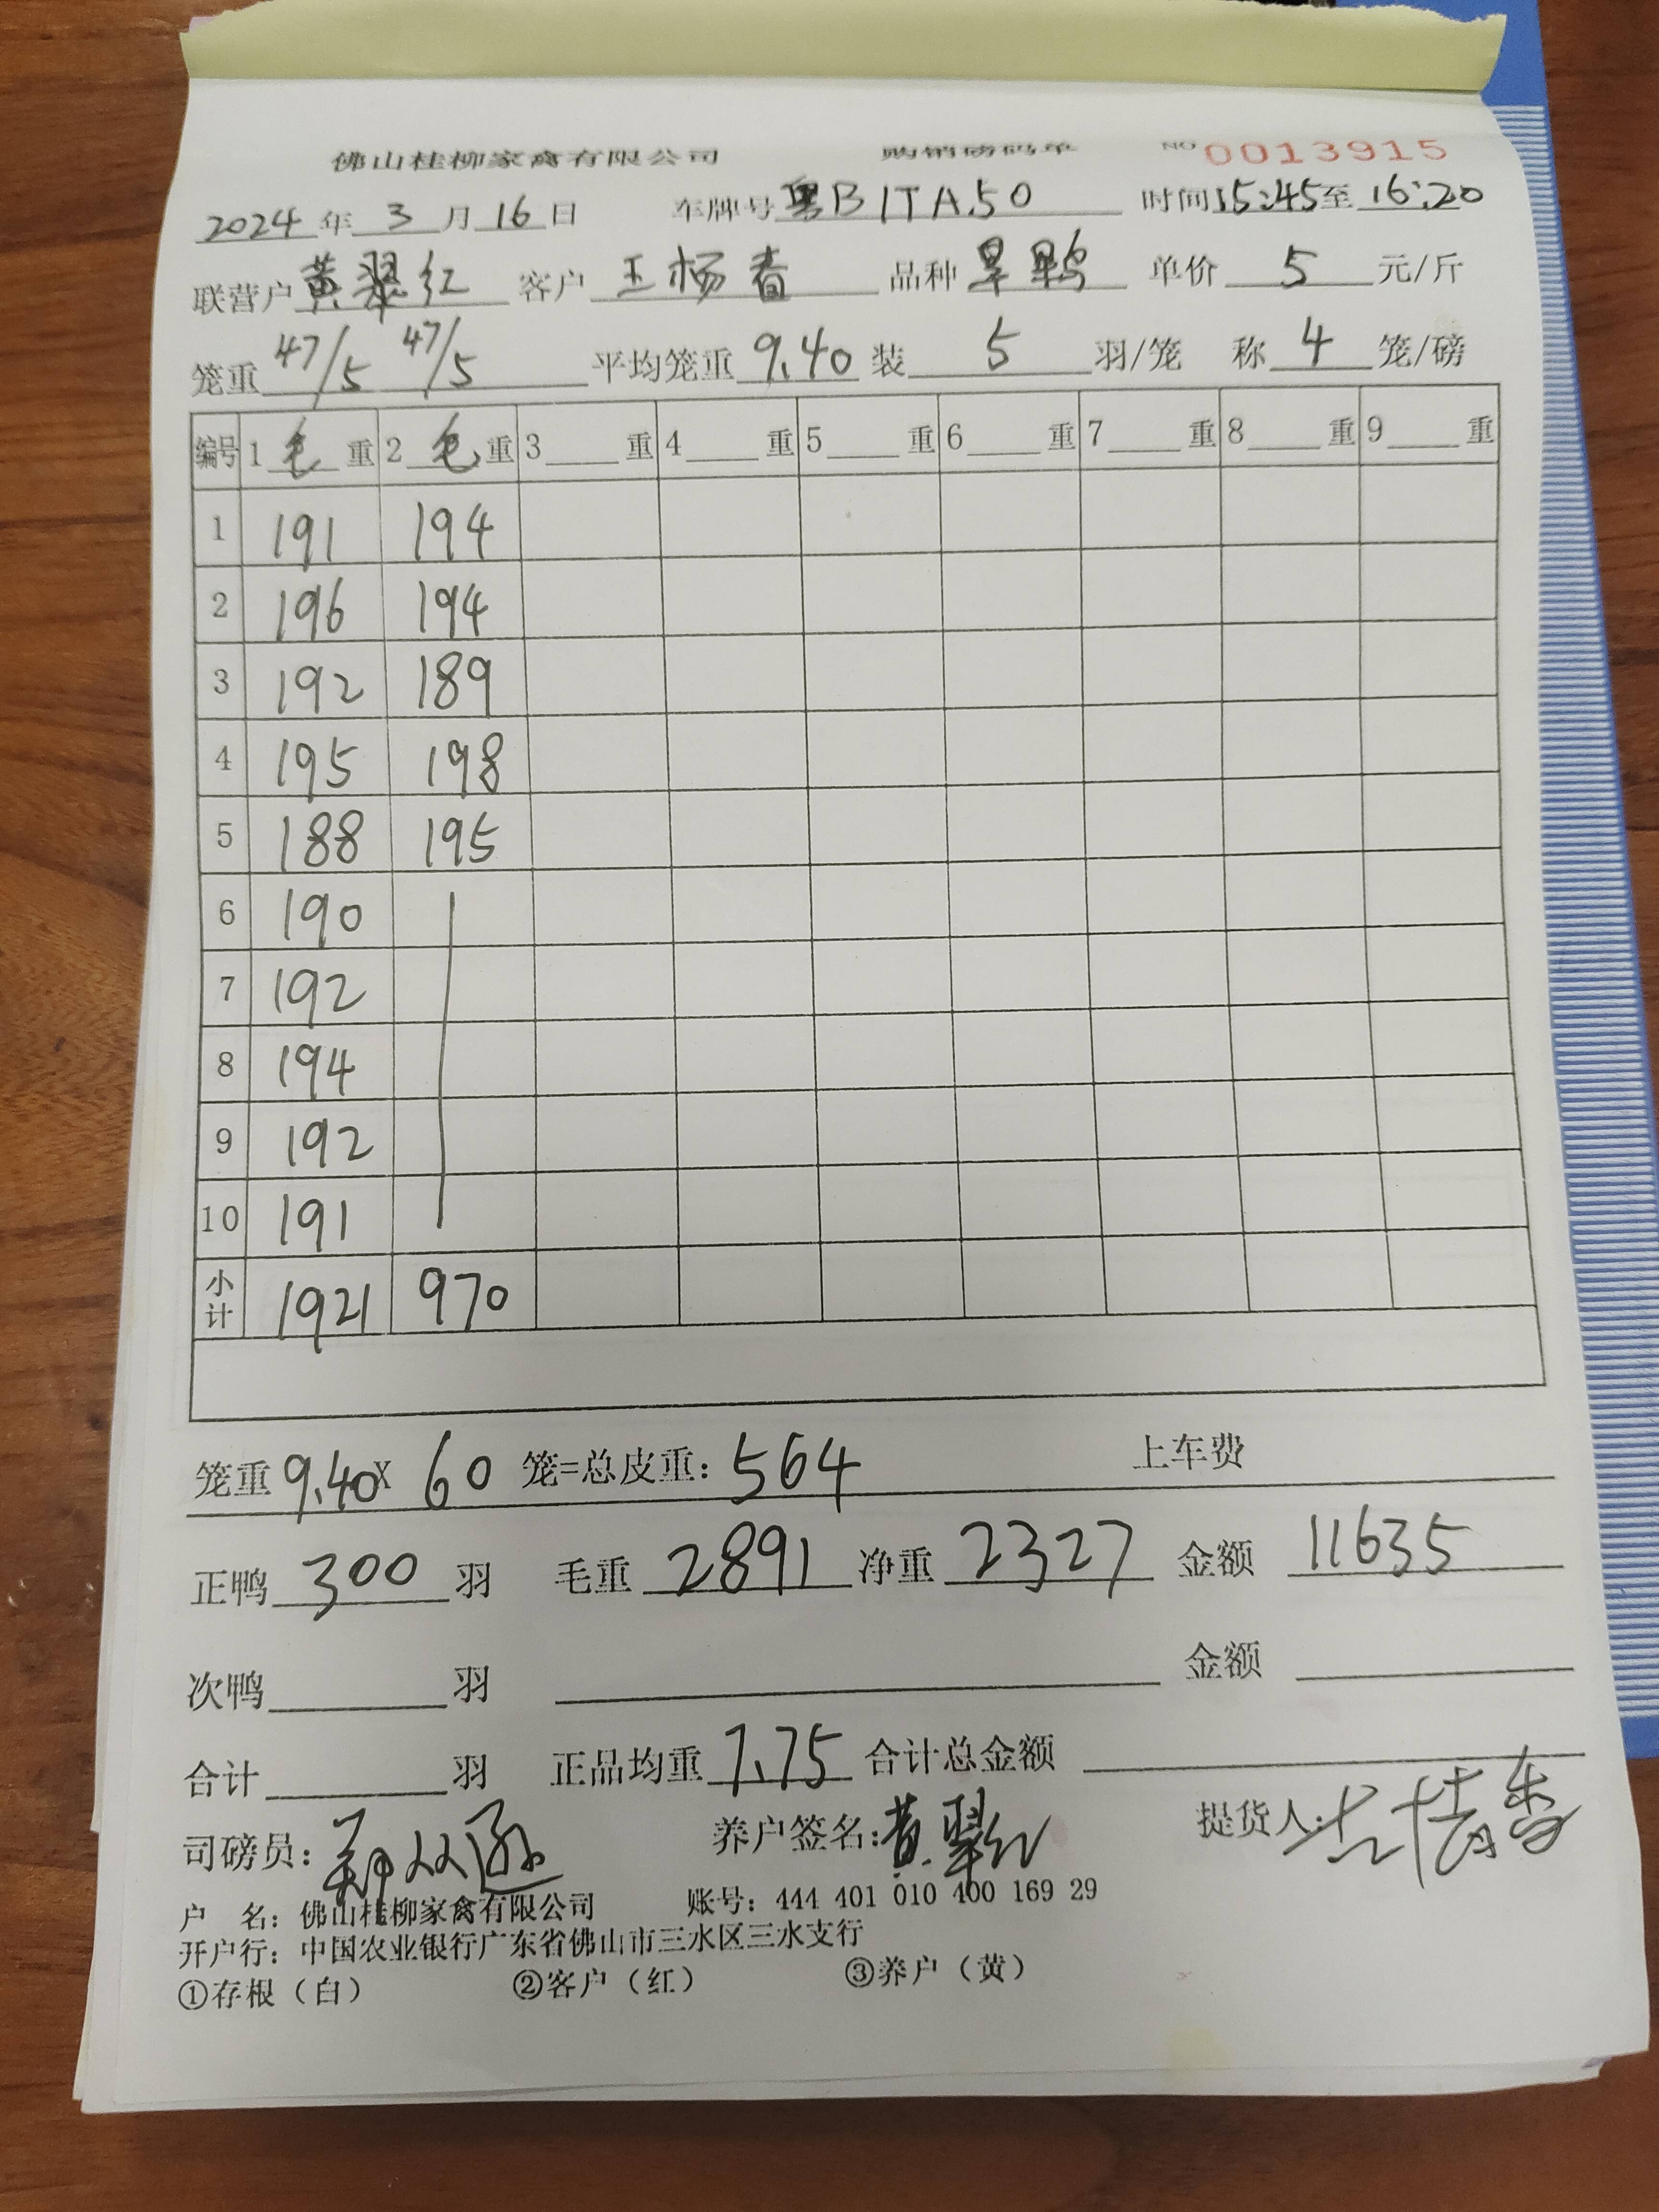 佛山桂柳家禽有限公司 购销磅码单 NO 0013915
2024 年 3 月 16 日 车牌号 粤B1TA50 时间 15:45 至 16:20
联营户 黄翠红 客户 王杨春 品种 旱鸭 单价 5 元/斤
笼重 47/5 47/5 平均笼重 9.40 装 5 羽/笼 称 4 笼/磅
编号 1 毛 重 2 毛 重 3 重 4 重 5 重 6 重 7 重 8 重 9 重
1 191 194
2 196 194
3 192 189
4 195 198
5 188 195
6 190
7 192
8 194
9 192
10 191
小计 1921 970
笼重 9.40 X 60 笼=总皮重: 564 上车费
正鸭 300 羽 毛重 2891 净重 2327 金额 11635
次鸭 羽 金额
合计 羽 正品均重 7.75 合计总金额
司磅员: 养户签名: 黄翠红 提货人:
户 名: 佛山桂柳家禽有限公司 账号: 444 401 010 400 169 29
开户行: 中国农业银行广东省佛山市三水区三水支行
①存根（白） ②客户（红） ③养户（黄）